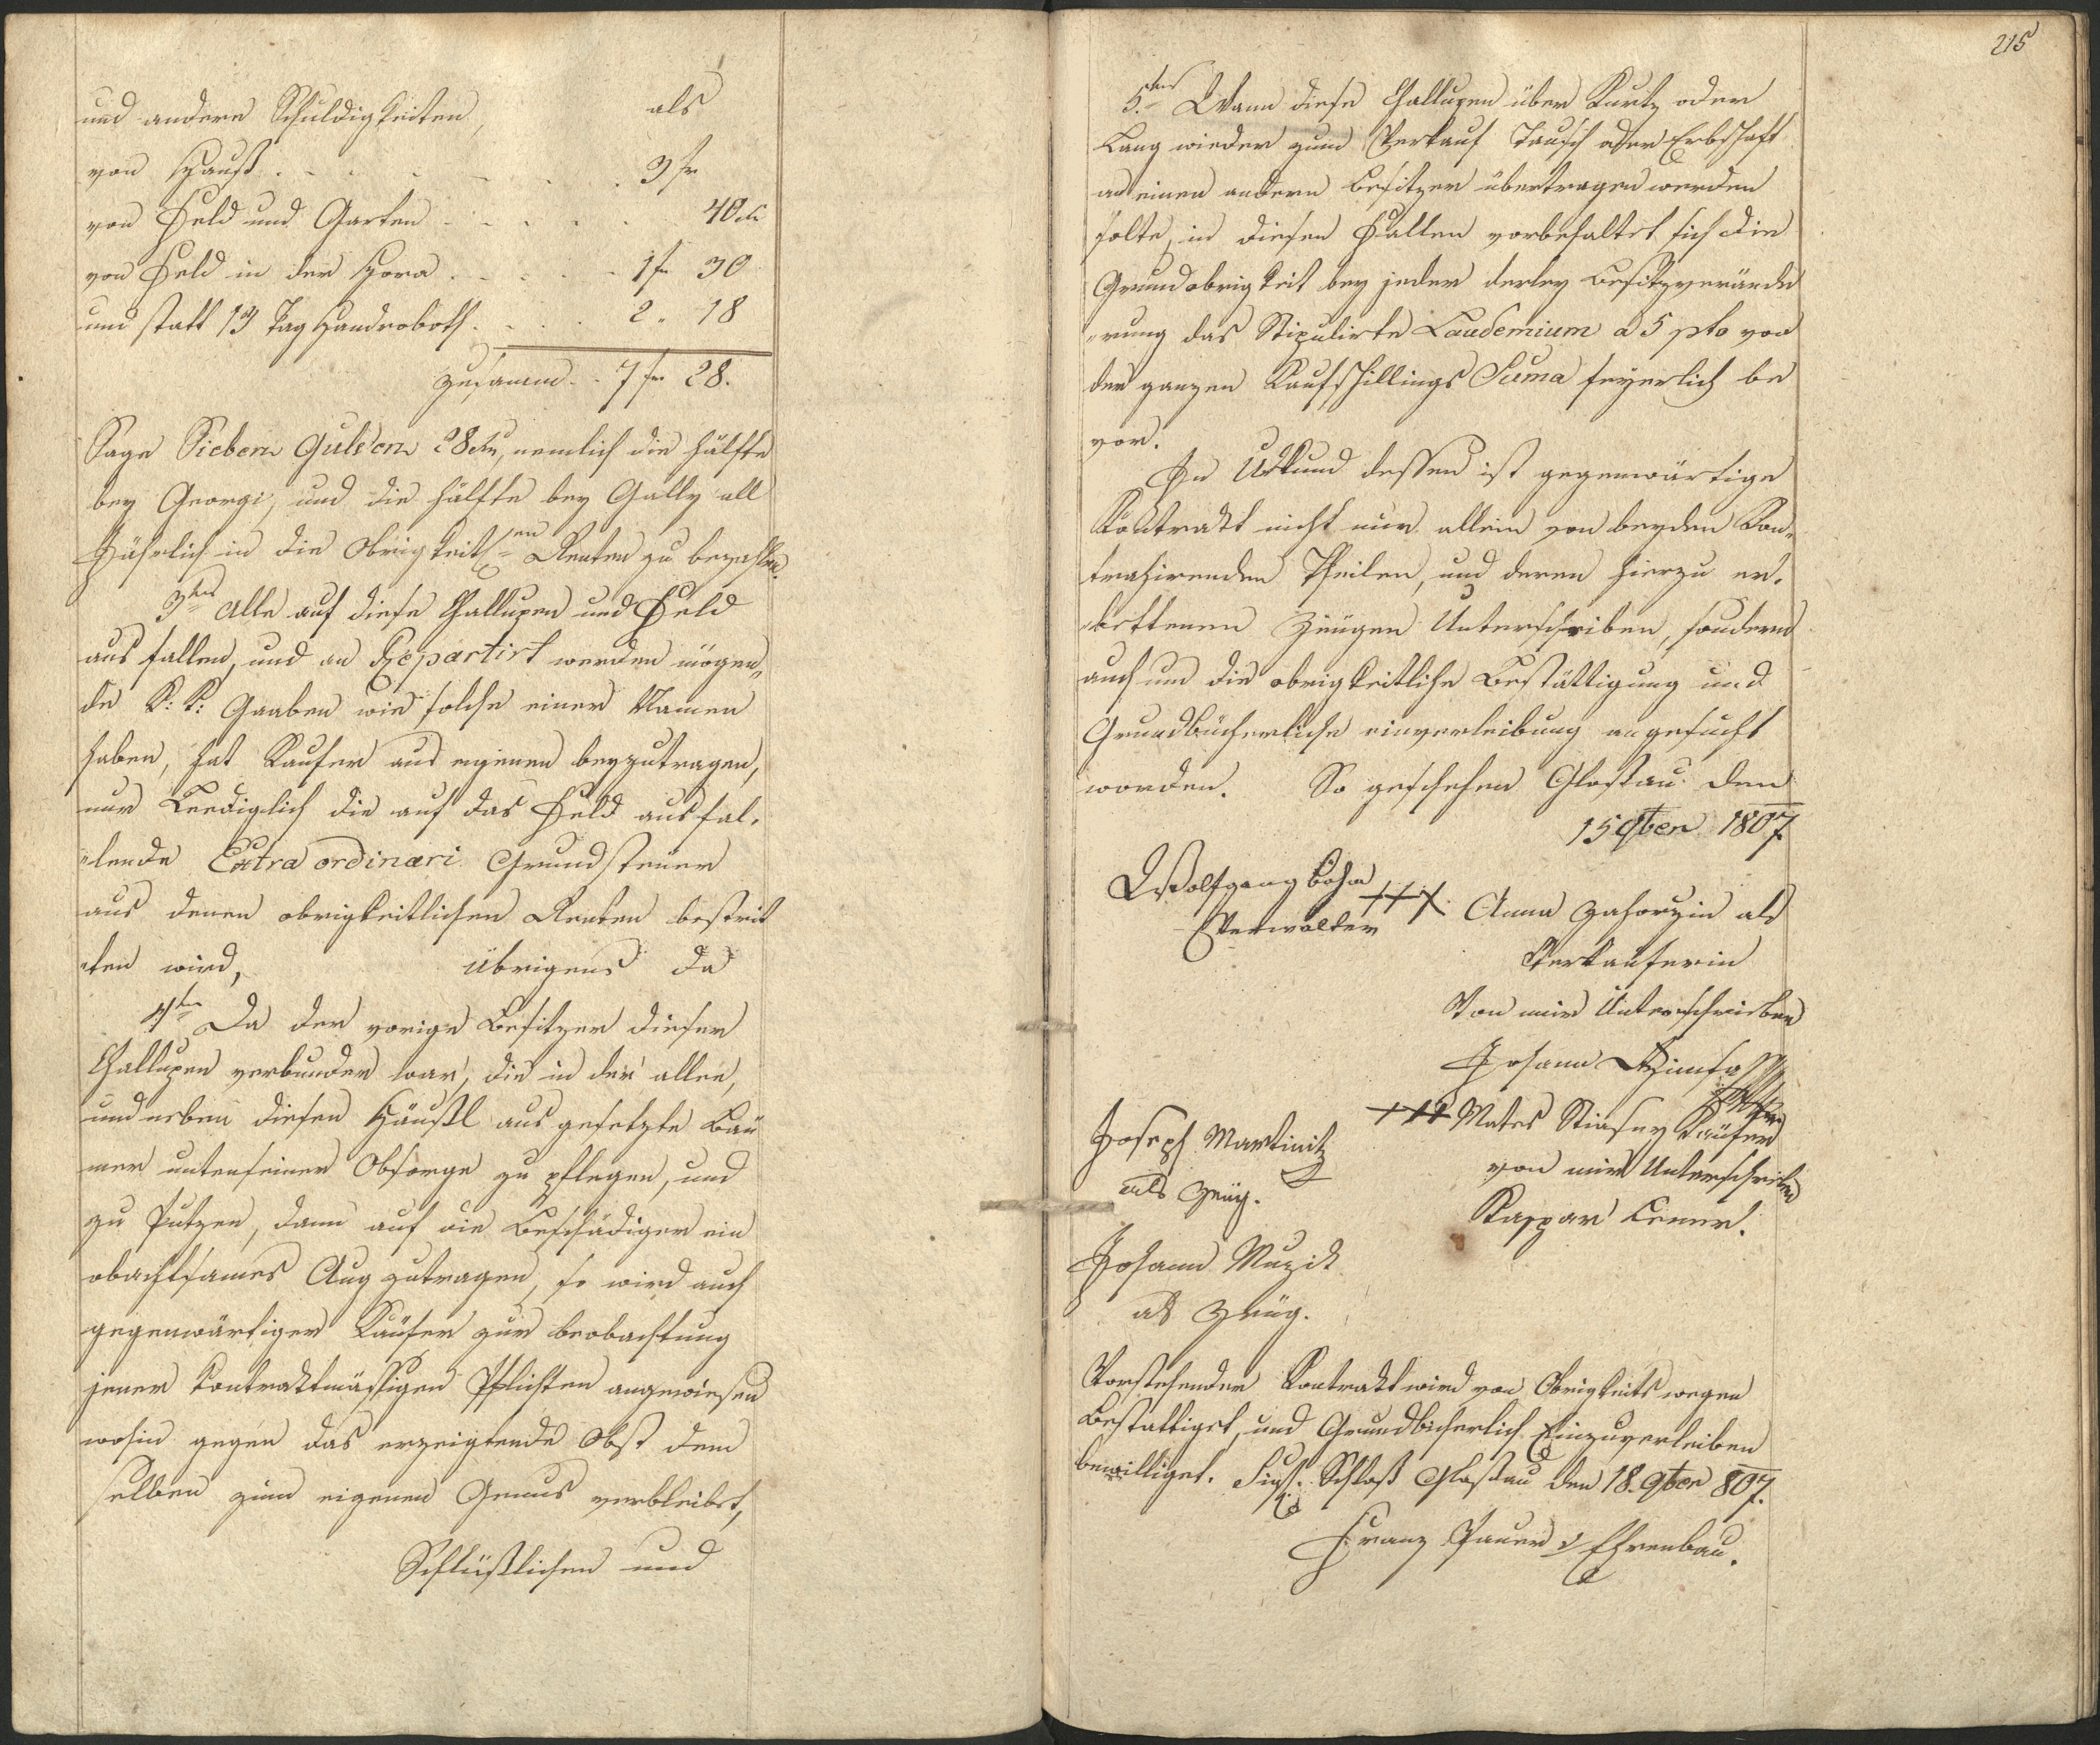 und andere Schuldigkeiten, als
von Hauß . . . . . . 3 fr
von Feld und Garten . . . . . 40 xr
von Feld in der Hora . . . . . 1 fr 30
und statt 13 Tag Handroboth . . . . 2 " 18
zusamm . . 7 fr 28.
Sage Sieben Gulden 28 xr, nemlich die Hälfte
bey Georgi, und die Hälfte bey Gally all
Jährlich in die Obrigkeitlen Renten zu bezahlen.
3tens Alle auf diese Challupen und Feld
aus fallen, und an Repartirt werden mögen„
de K: K: Gaaben wie solche einen Namen
haben, hat Kaufer aus eigenen beyzutragen,
nur Leediglich die auf das Feld ausfal„
„lende Extra ordinari Grundsteuer
aus denen obrigkeitlichen Renten bestrit
„ten wird, übrigens da
4ten Da der vorige Besitzer dieser
Challupen verbunden war, die in der allee,
und neben diesen Häußl aus gesetzte Bäu
mer unterseiner Obsorge zu pflegen, und
zu Putzen, dann auf die Beschädiger ein
obachtsames Aug zutragen, so wird auch
gegenwärtiger Käufer zur beobachtung
jener Kontraktmässigen Pflichten angewiesen
wohin gegen das erzeigtende Obst dem
selben zum eigenen Genus verbleibet,
Schlüßlichen und
215
5.tens Wann diese Challupen über Kurtz oder
Lang wieder zum Verkauf Tausch oder Erbschaft
an einen andern Besitzer übertragen werden
solte, in diesen Fallen vorbehaltet sich die
Grundobrigkeit bey jeder derley Besitzverände
„rung das Stipulirte Laudemium a 5 pto von
der ganzen Kaufschillings Suma feyerlich be
vor.
In Urkund dessen ist gegenwärtige
Kontrakt nicht nur allein von beyden Kon„
trahirenden Theilen, und deren hierzu er„
„bettenen Zeügen Unterschriben, sondern
auch um die obrigkeitliche Bestättigung und
Grundbücherliche einverleibung angesucht
worden. So geschehen Glostau den
15 9ber 1807
Wolfgang Böhm
Verwalter
+++ Anna Zahorzin als
Verkauferin
Von mir Unterschrieben
Johann
+++ Mates Stiasny Käufer
von mir Unterschrieben
Kaspar
Joseph Martinitz
als Zeüg.
Johann Muzik
als Zeüg.
Vorstehender Kontrakt wird von Obrigkeits wegen
Bestattiget, und Grundbücherlich Einzuverleiben
bewilliget. Schloß Glostau den 18. 9ber 807.
Franz Pauer v Ehrenbau.